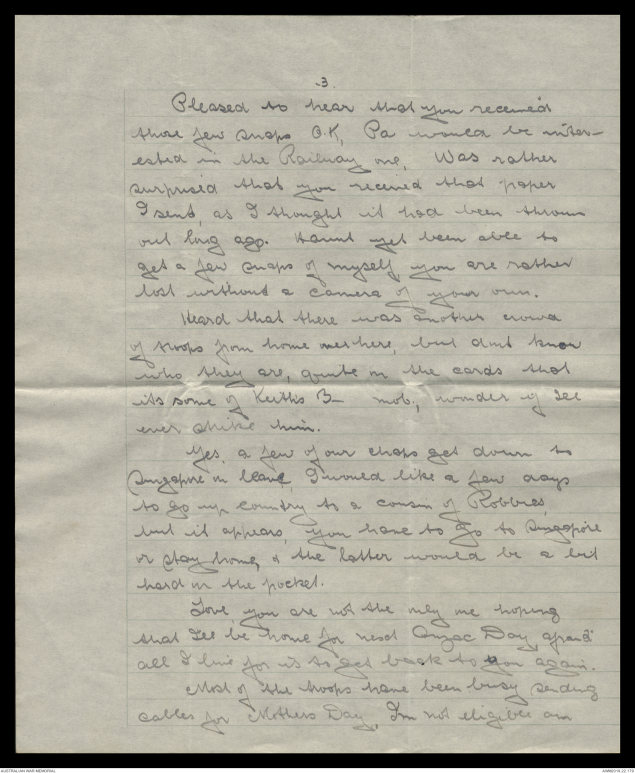 .3.
Pleased to hear that you received
those few snaps O.K, Pa would be inter-
ested in the Railway one, Was rather
surprised that you received that paper
I sent, as I thought it had been thrown
out long ago. Haunt yet been able to
get a few snaps of myself, you are rather
lost without a camera of your own.
Heard that there was another crowd
of troops from home over here, but dont know
who they are, quite on the cards that
its some of Keiths B— mob, wonder if Ill
ever strike him.
Yes, a few of our chaps get down to
Singapore on leave, I would like a few days
to go up country to a cousin of Robbies,
but it appears, you have to go to Singapore
or stay home, & the latter would be a bit
hard on the pocket.
Love, you are not the only one hoping
that Ill be home for next Anzac Day,
all I live for is to get back to you again.
Most of the troops have been busy sending
cables for Mothers Day, I'm not eligible am
AUSTRALIAN WAR MEMORIAL